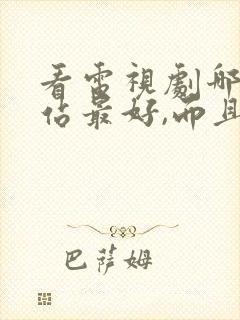 看電視劇哪
佔最好,而且
巴薩姆